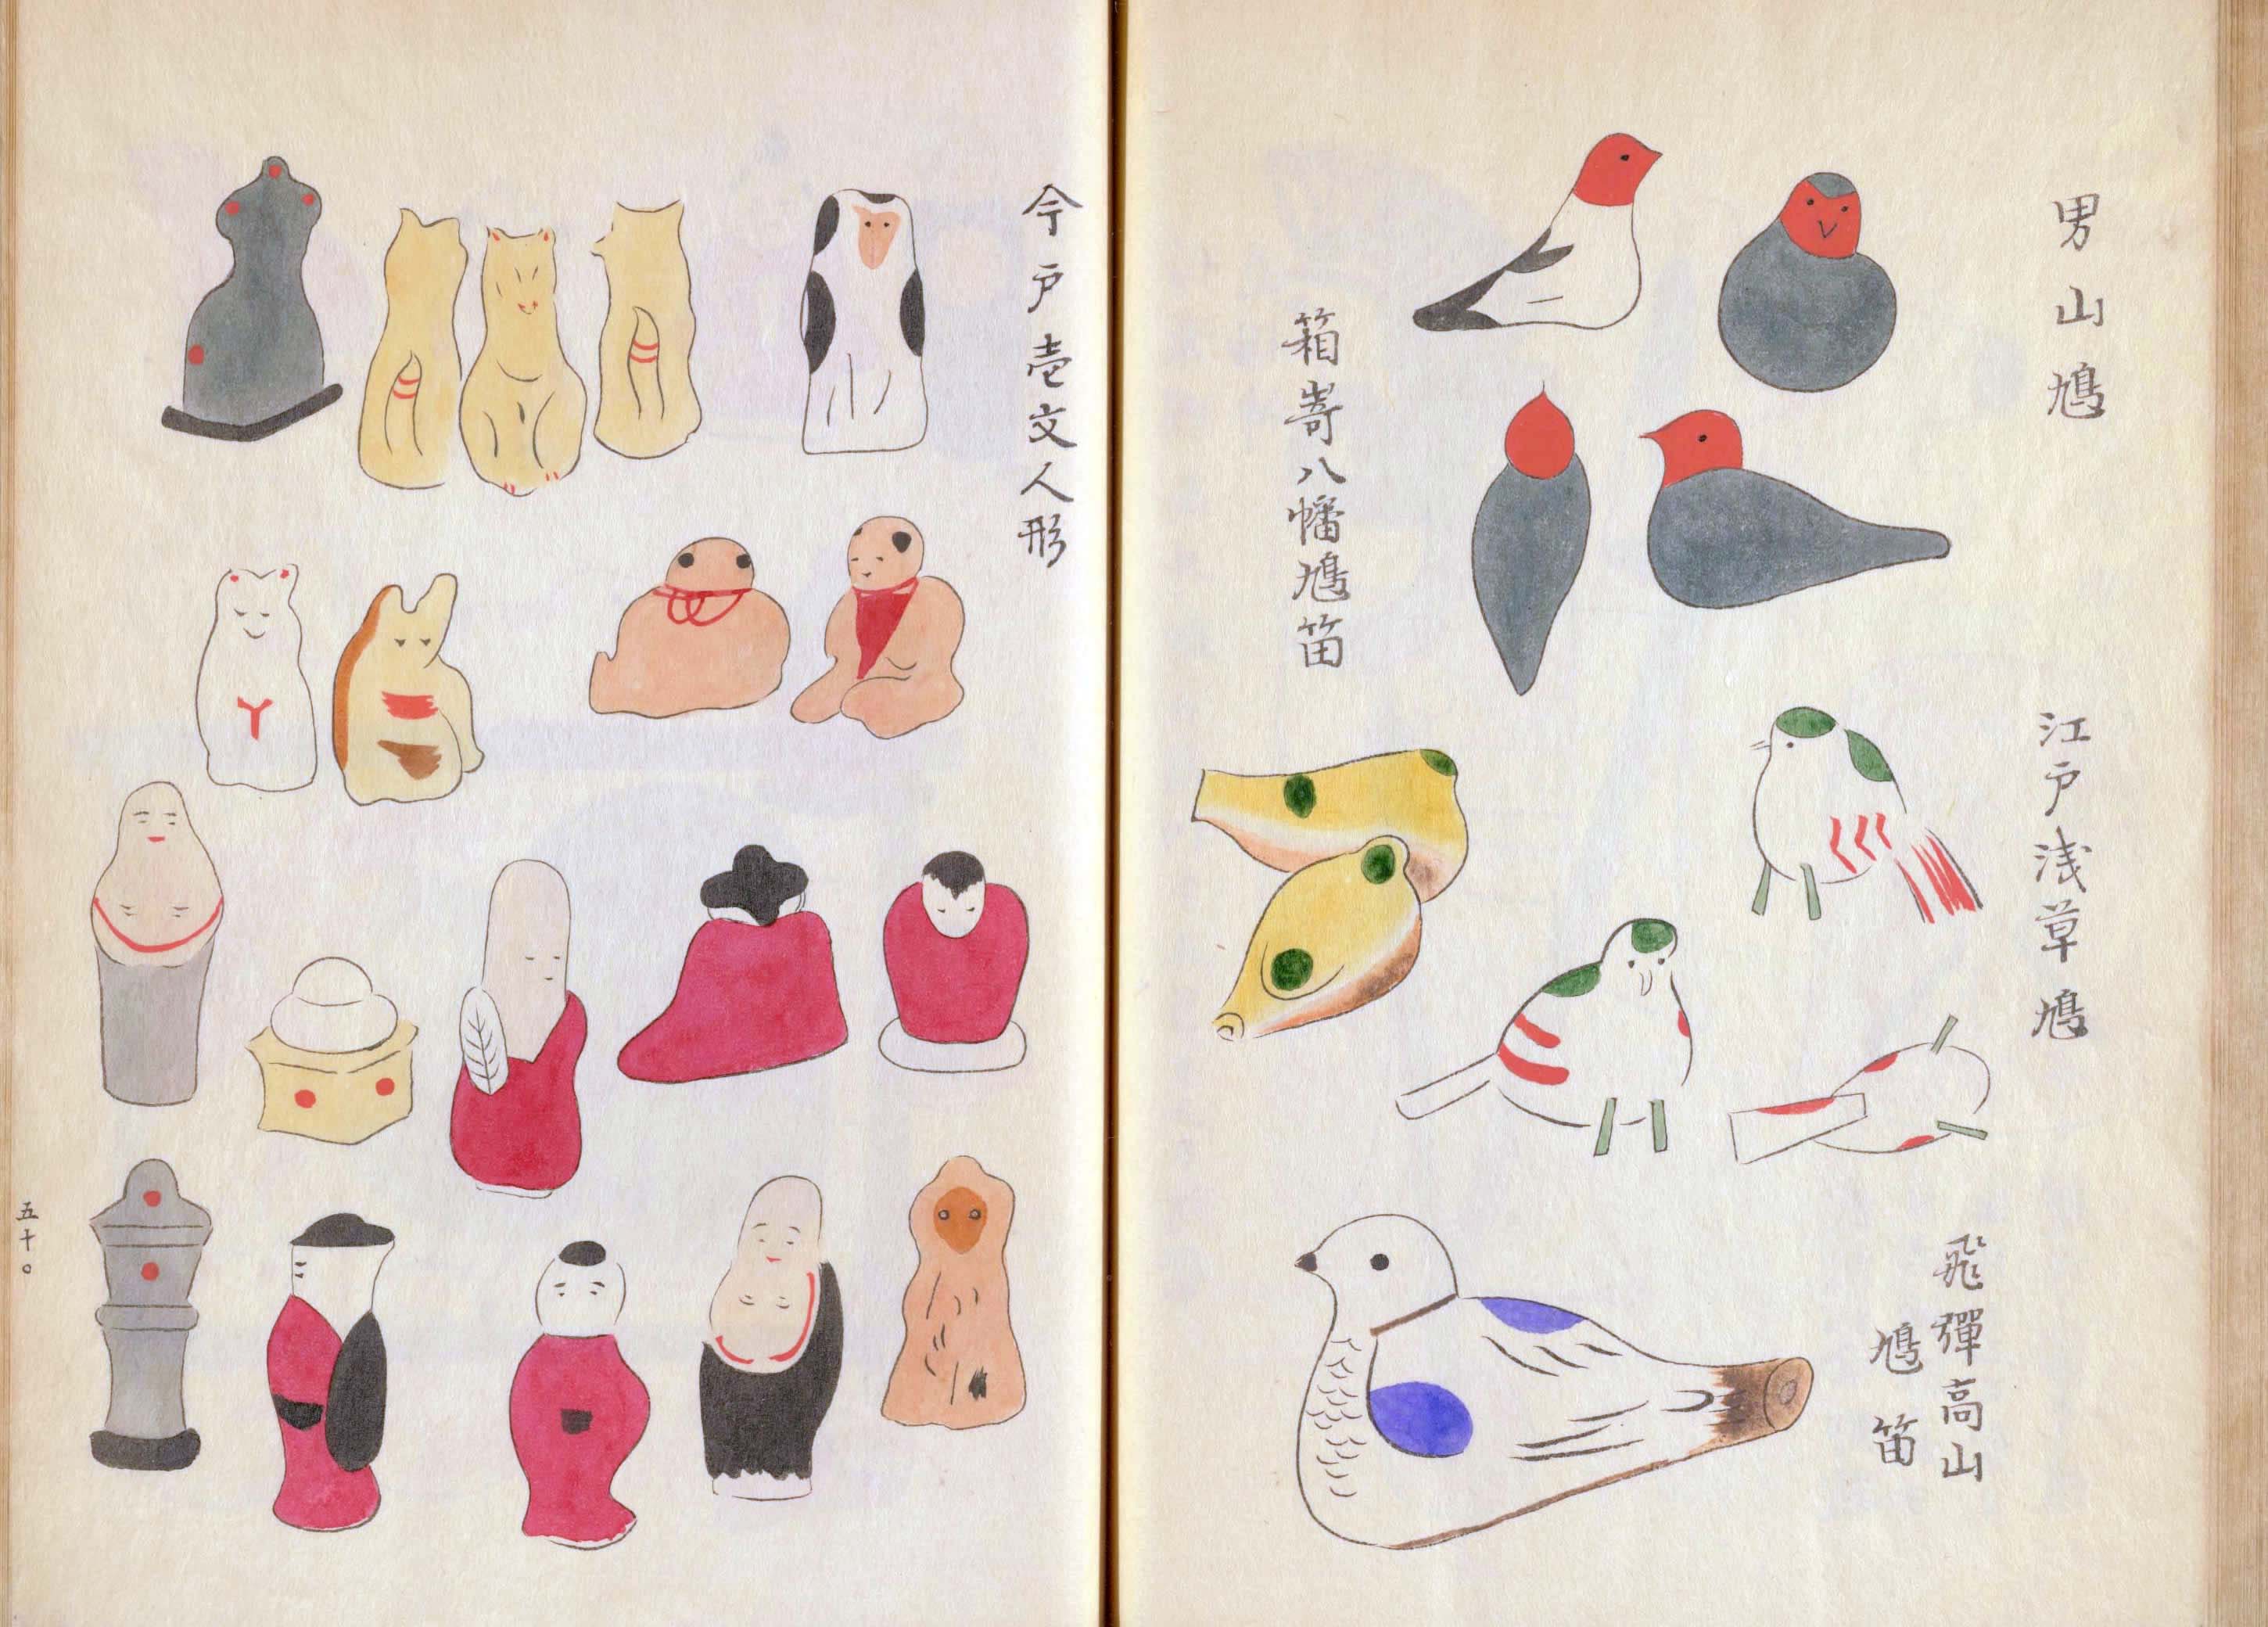 男山鳩
江戸浅草鳩
飛彈高山
鳩笛
箱嵜八幡鳩笛
今戸壱文人形
五十〇